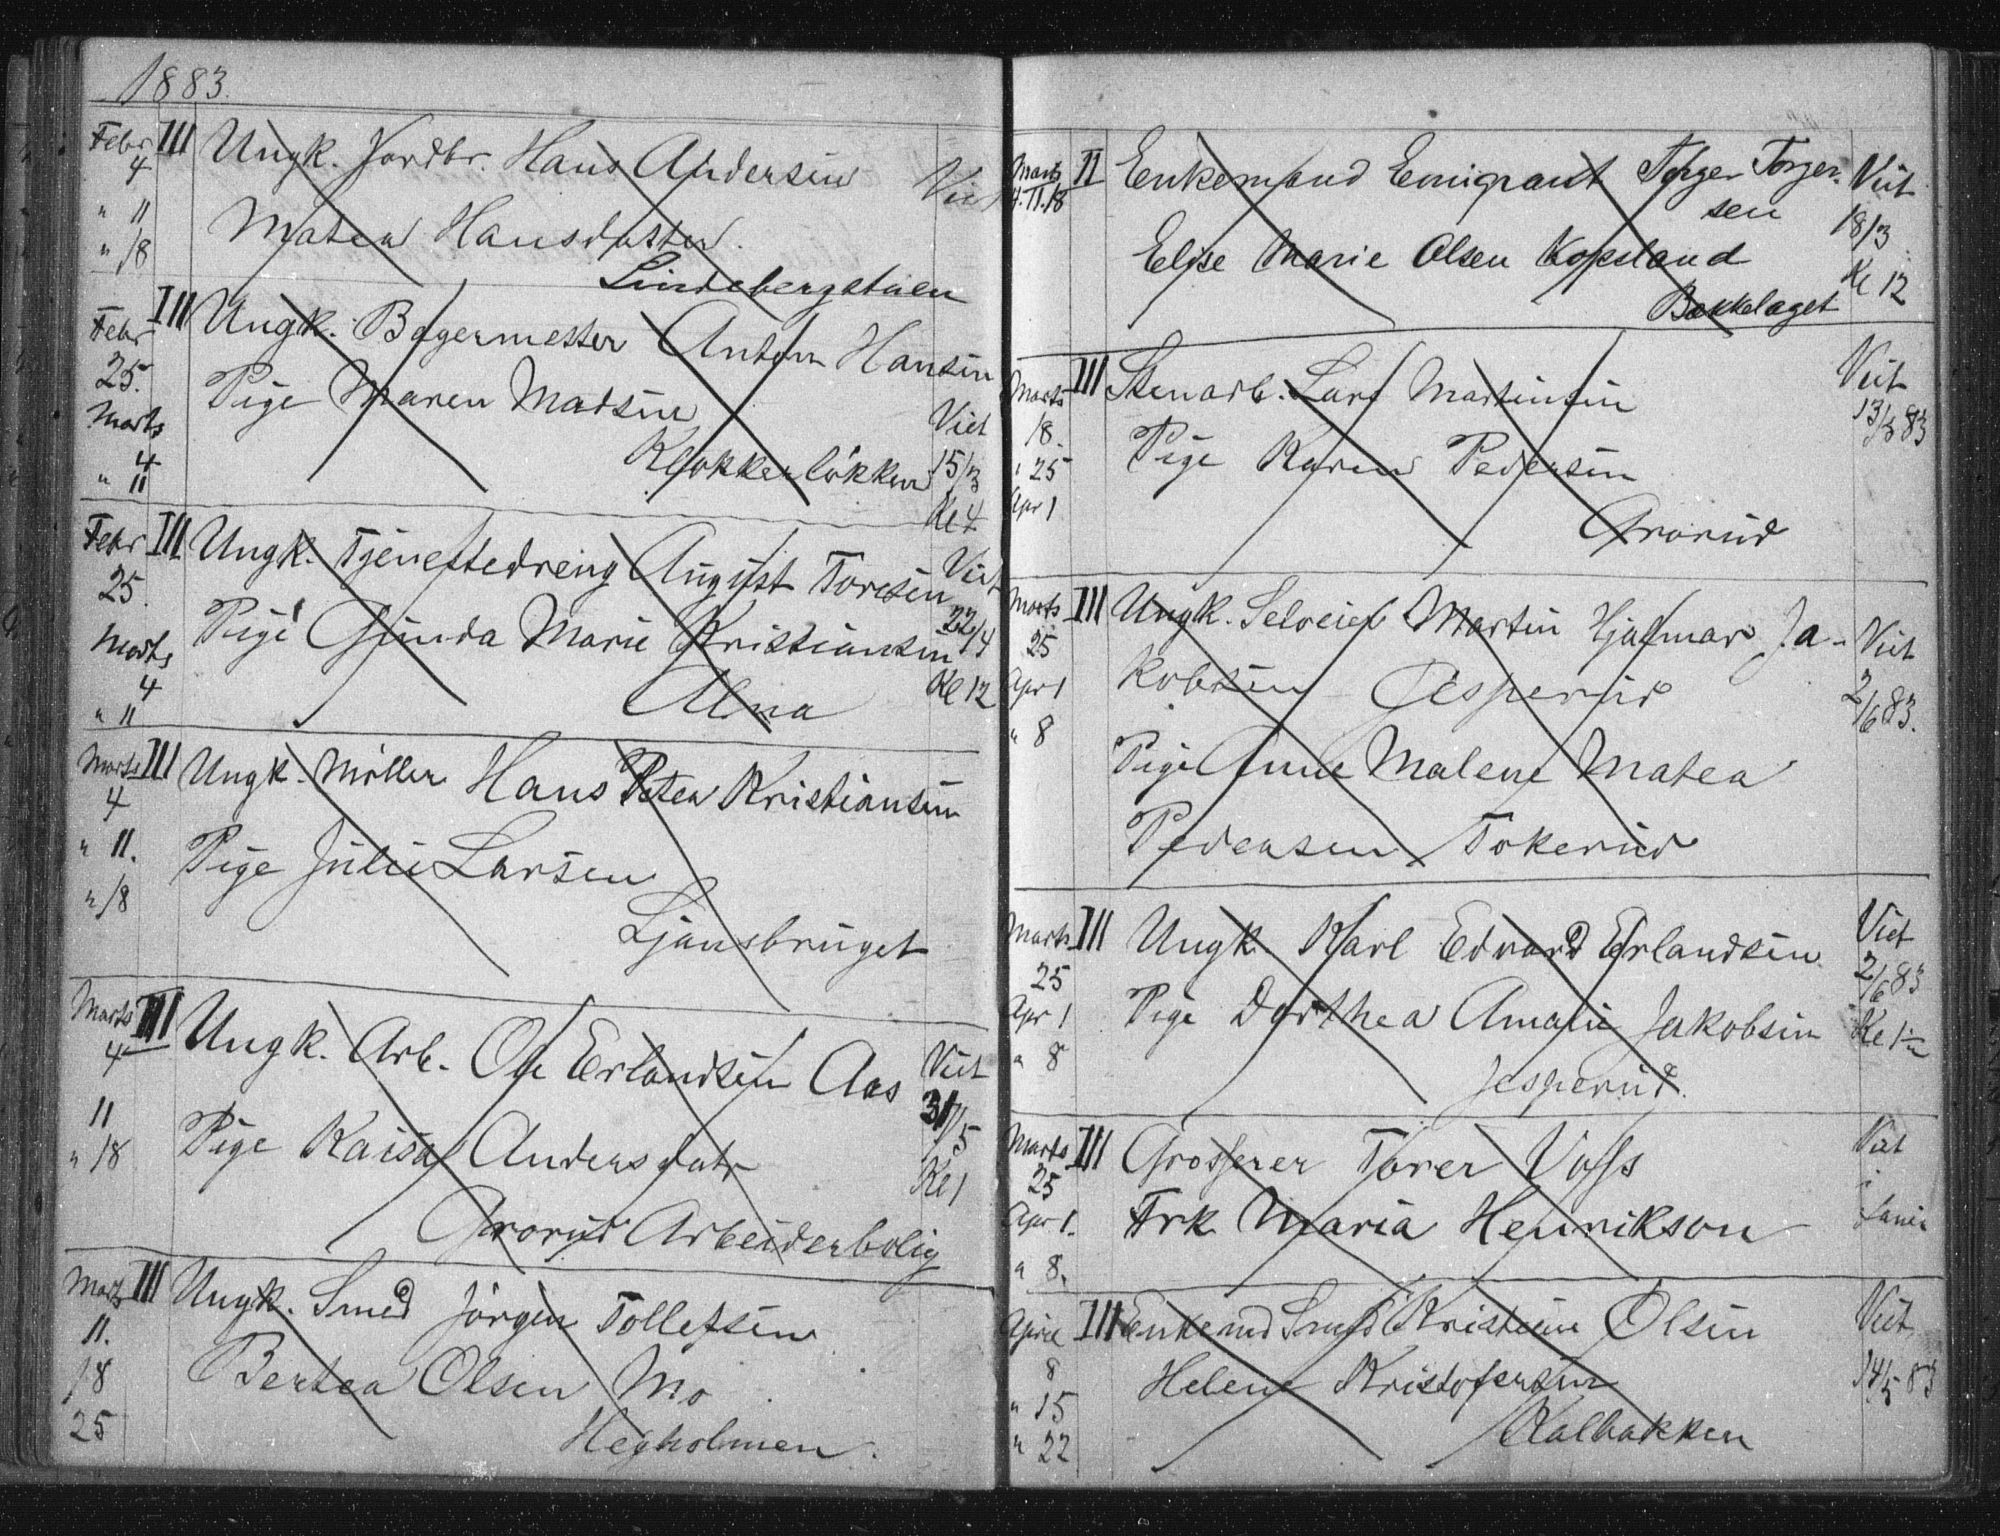 1883.
Febr III Ungk. Jordbr. Hans Andersen
4 Viet
" 11 Matea Hansdatter.
" 18 Lindebergstuen
Febr III Ungk. Bagermester Anton Hansen
25. Pige Maren Madsen Viet
Marts 15/3
4 Klokkerløkken Kl 4
" 11
Febr III Ungk. Tjenestedreng August Toresen Viet
25. 22/4
Pige Gunda Marie Kristiansen
Marts Kl 12
4 Alna
" 11
Marts III Ungk. Möller Hans Peter Kristiansen
4
" 11. Pige Julie Larsen
" 18 Ljansbruget
Marts III Ungk. Arb. Ole Erlandsen Aas Viet
4 31/5
11 Pige Kaisa Andersdatr Kl 1
" 18 Grorud Arbeiderbolig
Marts III Ungk. Smed Jörgen Tollefsen
11.
18 Bertea Olsen Mo
25 Heggholmen.
Marts II Enkemand Emigrant Torger Torger- Viet
4. 11. 18 sen 18/3
Elise Marie Olsen Kopsland Kl 12
Bækkelaget
Marts III Stenarb. Lars Martinsen Viet
18. 13/5 83
" 25 Pige Karen Pedersen
Apr 1 Grorud
Marts III Ungk. Selveier Martin Hjalmar Ja- Viet
25
Apr 1 kobsen Jesperud 2/6 83.
" 8 Pige Anne Malene Matea
Pedersen Tokerud
Marts III Ungk. Karl Edvard Erlandsen Viet
25 2/6 83
Apr 1 Pige Dorthea Amalie Jakobsen Kl 1½
" 8 Jesperud.
Marts III Grosserer Torer Voss Viet
25 i
Apr 1. Frk Maria Henrikson
" 8.
April III Enkemd Smed Kristian Olsen Viet
8 Helene Kristofersen 14/5 83
" 15
" 22 Kalbakken